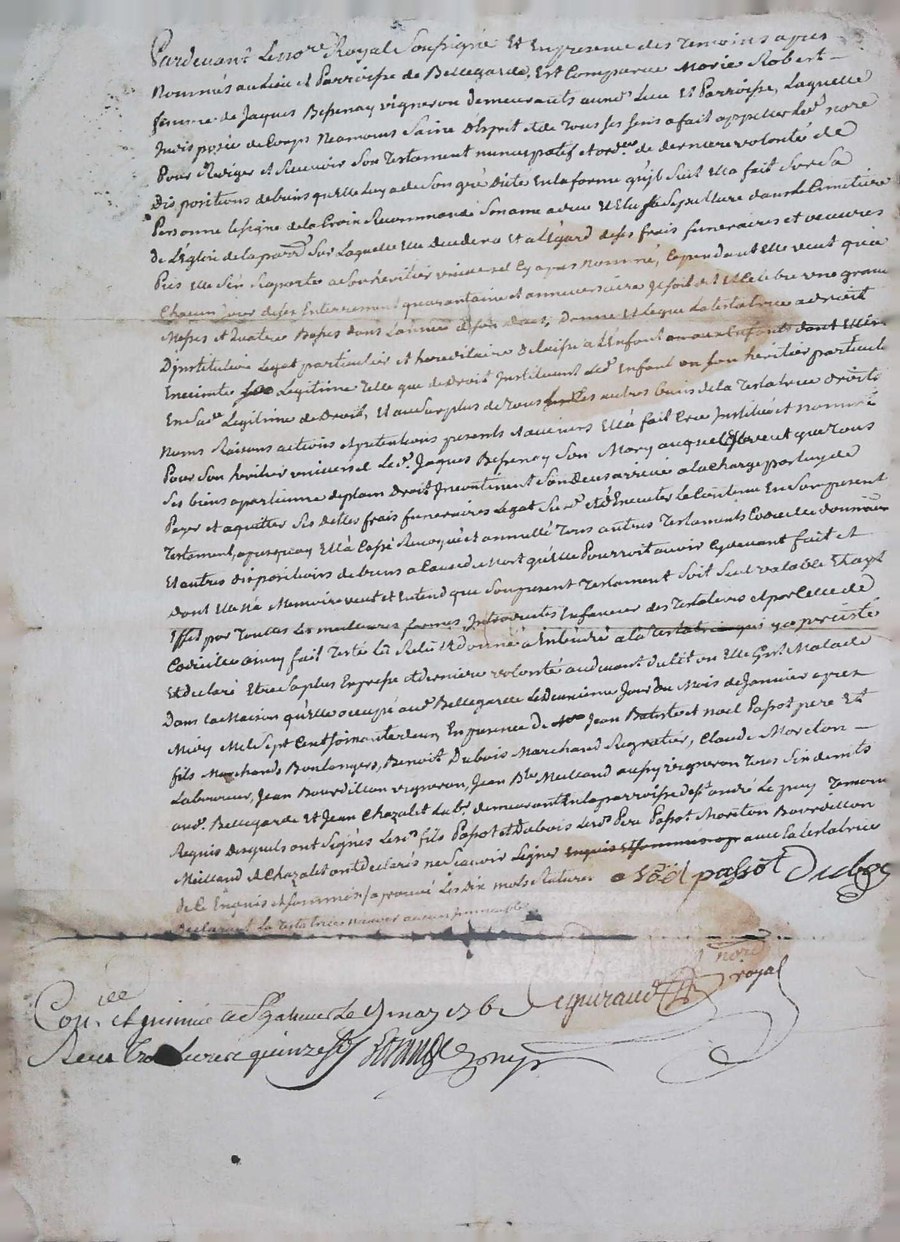 Pardevant Le nore Royal Soussigné Et En presence des temoins apres
Nommés au Lieu et Parroisse de Bellegarde, Est Comparue Marie Robert
femme de Jaques Bessenay vigneron demeurants aud. Lieu et Parroisse, Laquelle
Indisposée de Corps Neamoins Saine d'Esprit et de Tous ses sens a fait appeller Led. nore
Pour Rediger et Recevoir Son Testament nuncupatif et de derniere volonté de
Dispositions de biens qu'Elle luy a de son gré Dicté En la forme qu'il Suit Ella fait Sur Sa
Personne le Signe de la Croix Recommandé Son ame a dieu Elu sa Sepulture dans le Cimetiere
de L'Eglise de la par. Sur Laquelle Elle decedera et a l'Egard de ses frais funeraires et oeuvres
Pies Elle S'en Raporte a Son heritier universel Cy apres Nommé, Cependant Elle veut qu'a
Chacun Jour de ses Enterrement quarantaine et anniversaire Il soit dit et Celebré une grande
Messes et Quatre Basses dans L'année de son deces, Donne et Legue La testatrice a droit
D'institution Legat particulier et hereditaire Delaisse a L'Enfant ou aux Enfants dont Elle
Enceinte Legitime Telle que de Droit Instituant Led. Enfant en son heritier particulier
En Sad. Legitime de Droit, Et au Surplus de Tous Les autres biens de la Testatrice droits
Noms Raisons actions et pretentions presents et avenirs Ella fait Cree Institué et nommé
Pour Son heritier universel Led. Jaques Bessenay Son Mary auquel Elle veut que Tous
Ses biens apartienne de plain Droit Incontinent Son Deces arrivé a la Charge par luy de
Payer et aquitter Ses dettes frais funeraires Legat Susd. et d'Executer Le Contenu En Son present
Testament, apres quoy Ella Cassé Revoqué et annullé Tous autres Testaments Codicille donnations
Et autres dispositions de biens a Cause de Mort qu'Elle Pourroit avoir Cydevant fait et
dont Elle n'a Memoire veut et Entend que Son present Testament Soit Seul valable
Effet par Toutes Les meilleures formes Introduites En faveur des Testateurs et par Celle de
Codicille ainsy fait Testé Lû Relû Et donné a Entendre a la Testatrice qui y a persisté
Et declaré Etre Sa plus Expresse et derniere volonté au devant du lit ou Elle Git Malade
Dans la Maison qu'Elle occupe aud. Bellegarde Le deuxieme Jour du Mois de Janvier apres
Midy Mil Sept Cent Soixante deux En presence de Jean Batiste et noel Passot pere Et
fils Marchands Boulangers, Benoit Dubois Marchand Regratier, Claude Moreton
Laboureur, Jean Bourdillon vigneron, Jean Bte Meilland aussy vigneron Tous Six demts
aud. Bellegarde Et Jean Chazalet Labr. demeurant En la parroisse de St. andré Le puy Temoins
Requis desquels ont Signés Lesd. fils Passot et Dubois Lesd. Pere Passot Moreton Bourdillon
Meilland et Chazalet ont declarés ne Scavoir Signer avec La testatrice
de Ce Enquis et Sommés aprouvé Les dix mots Raturés a Noel passot Dubois
Declarant La Testatrice
nore
royal
Conlle et Insinué a St Galmier Le mars 176
Recu trois livres quinze s